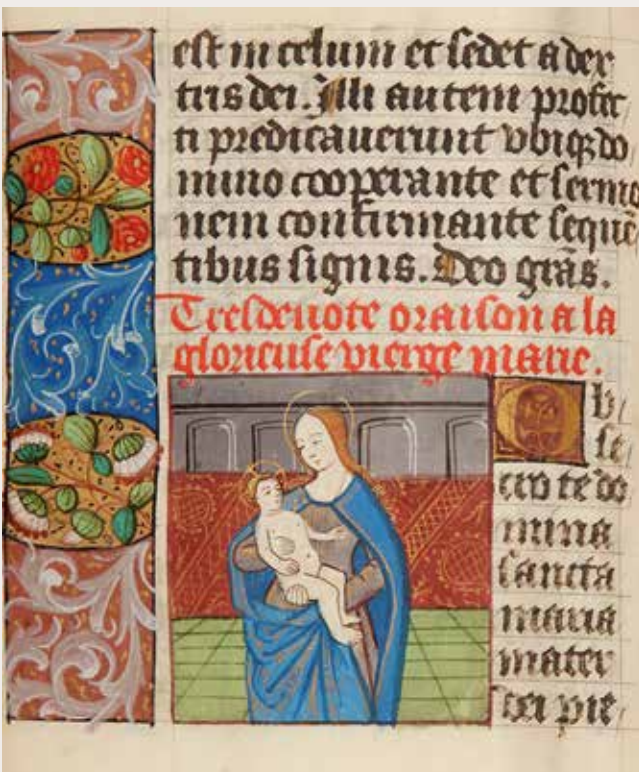 est in celum et sedet a dex
tris dei. Illi autem profec
ti predicauerunt vbiqꝫ do
mino cooperante et sermo
nem confirmante sequē
tibus signis. Deo grãs.
Tresdeuote oraison a la
glorieuse vierge marie.
O b
se
cro te do
mina
sancta
maria
mater
dei pie